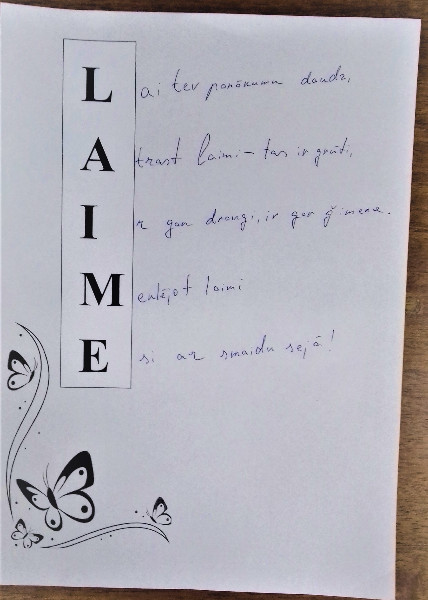 Lai tev panākumu daudz,
Atrast laimi - tas ir grūti,
Ir gan draugi, ir gan ģimene.
Meklējot laimi
Esi ar smaidu sejā!